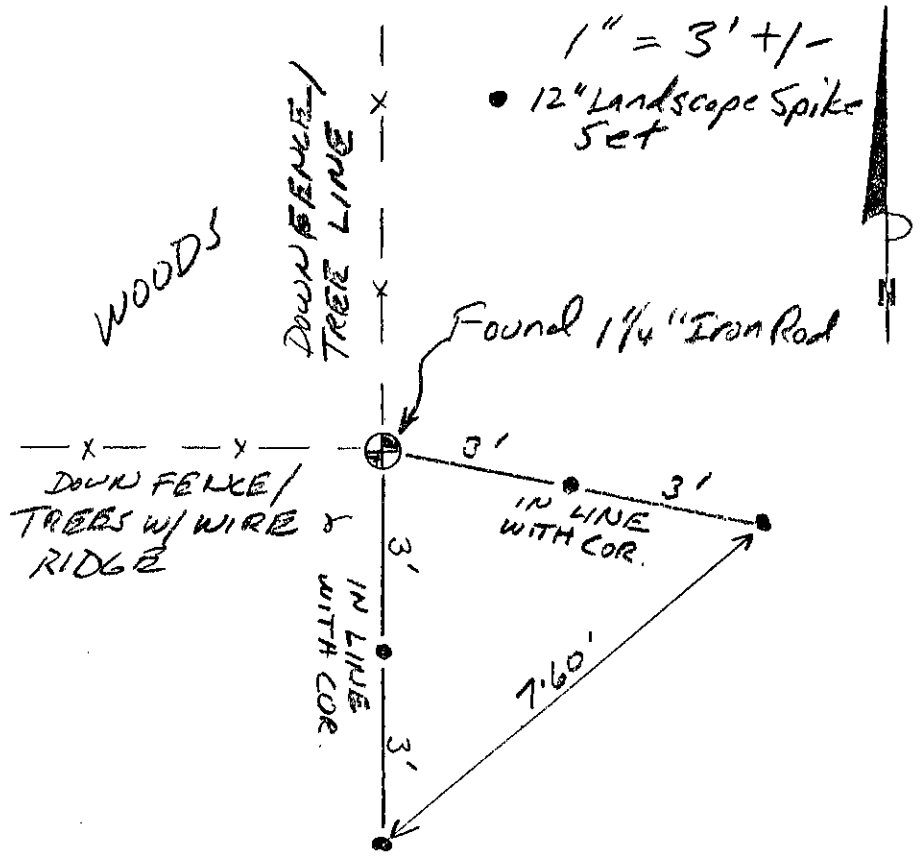 1" = 3' +/-
• 12" Landscape Spike
Set
DOWN FENCE/
TREE LINE
WOODS
N
Found 1 1/4" Iron Rod
DOWN FENCE/
TREES W/ WIRE &
RIDGE
3'
3'
IN LINE
WITH COR.
3'
IN LINE
WITH COR.
3'
7.60'